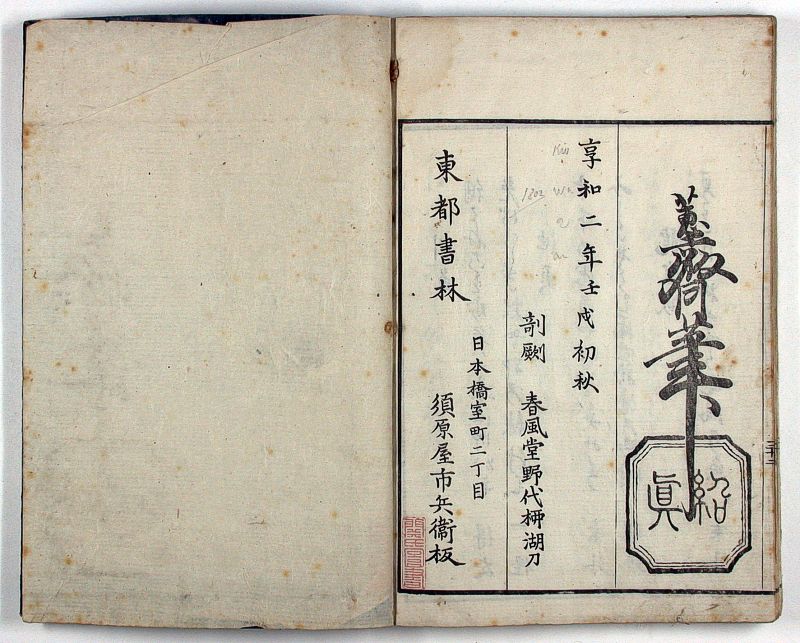 蕙齋筆
紹眞
享和二年壬戌初秋
剞劂 春風堂野代柳湖刀
1802
東都書林
日本橋室町二丁目
須原屋市兵衞板